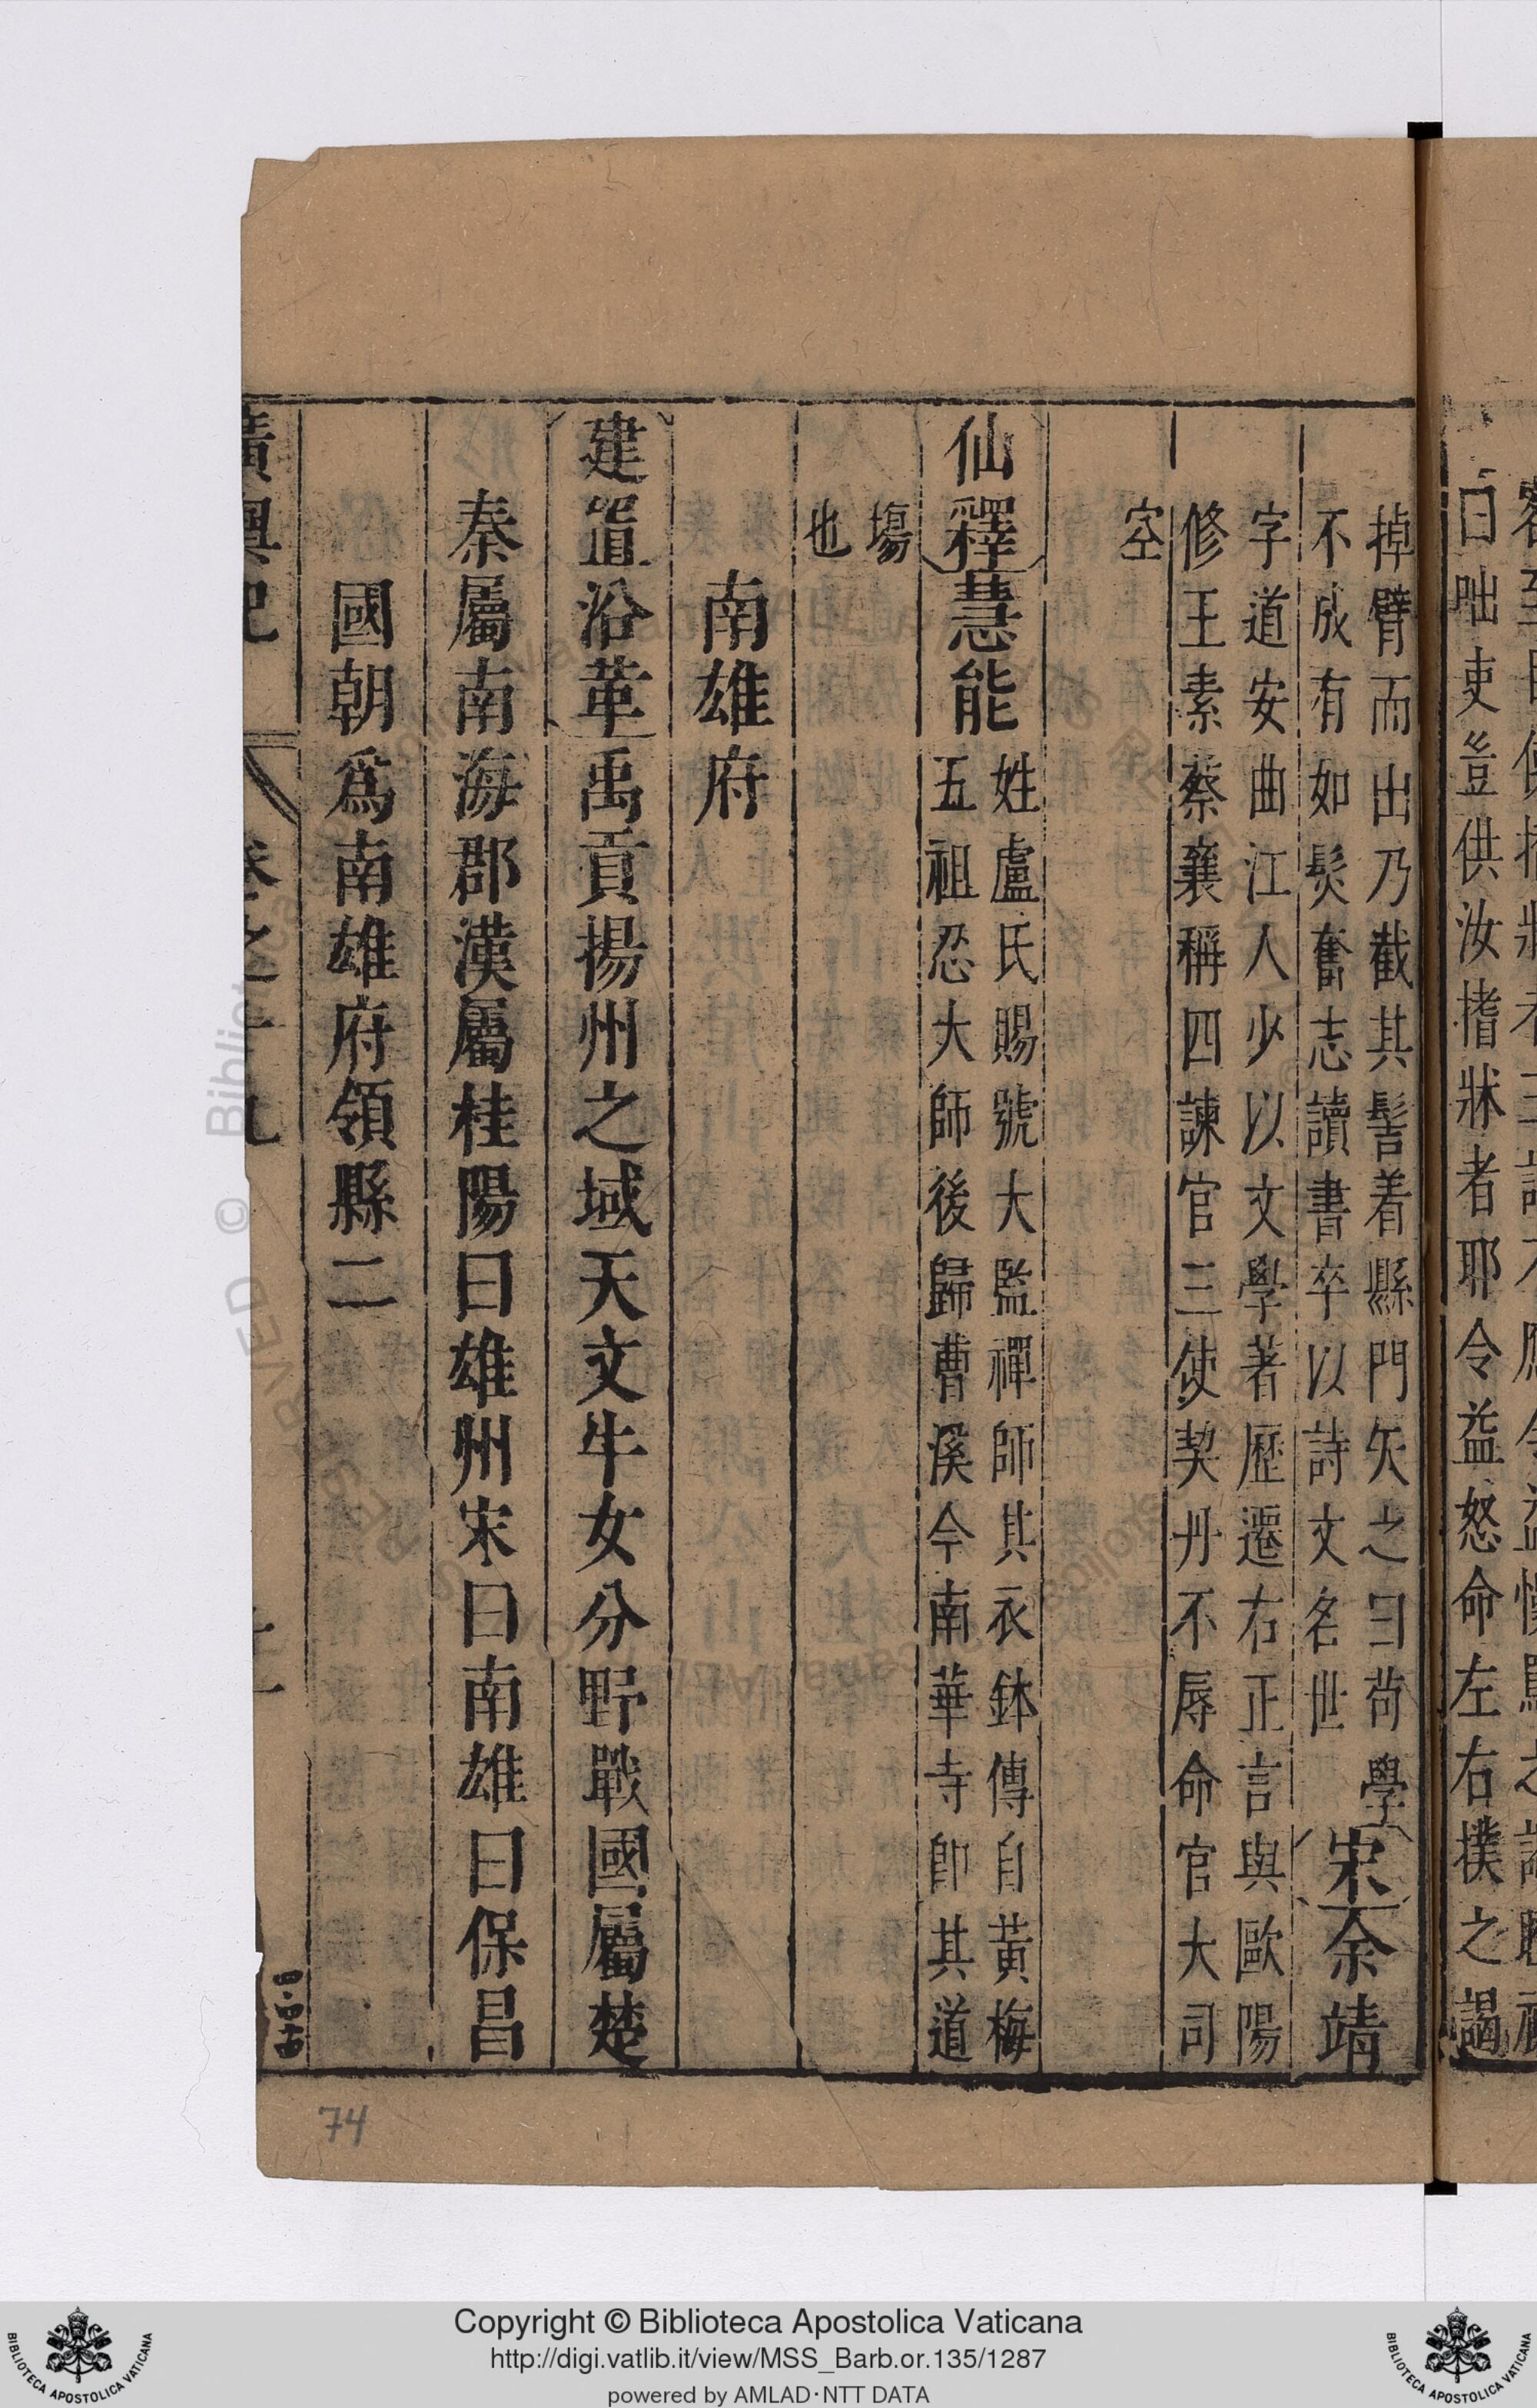 曰咄吏豈供汝揸牀者耶令益怒命左右撲之謁
掉臂而出乃截其髻着縣門矢之曰茍學
不成有如髮奮志讀書卒以詩文名世
宋余靖
字道安曲江人少以文學著歷遷右正言與歐陽
修王素蔡襄稱四諫官三使契丹不辱命官大司
空
仙釋慧能
姓盧氏賜號大監禪師其衣鉢傳自黃梅
五祖忍大師後歸曹溪今南華寺卽其道
塲
也
南雄府
建置沿革禹貢揚州之域天文牛女分野戰國屬楚
秦屬南海郡漢屬桂陽曰雄州宋曰南雄曰保昌
國朝爲南雄府領縣二
廣輿記
卷之十九
74
Copyright © Biblioteca Apostolica Vaticana
http://digi.vatlib.it/view/MSS_Barb.or.135/1287
powered by AMLAD・NTT DATA
BIBLIOTECA APOSTOLICA VATICANA
BIBLIOTECA APOSTOLICA VATICANA